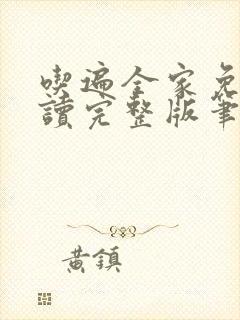 喫遍全家免
讀完整版筆
黃鎮